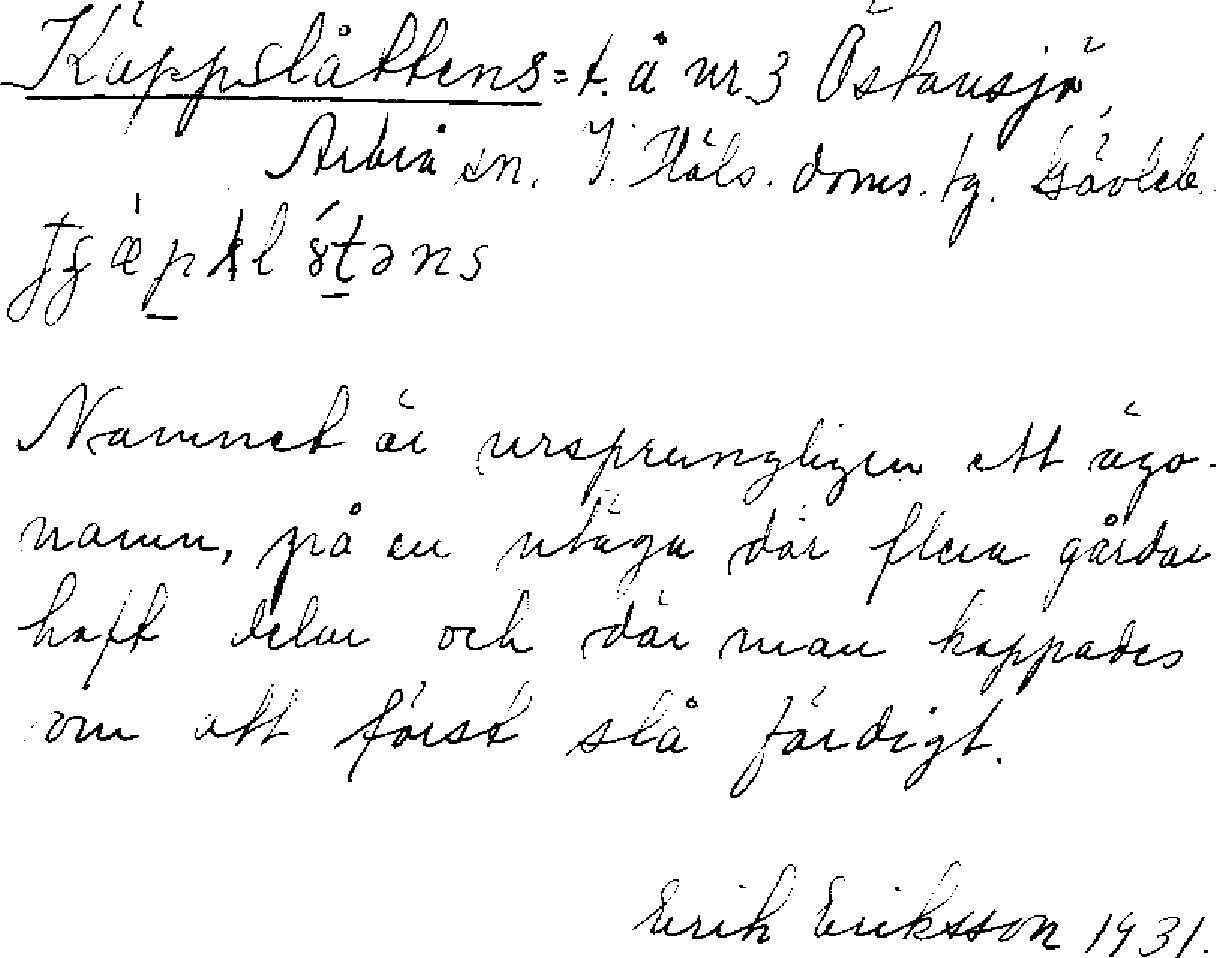 Käppslåttens = t. å nr 3 Östansjö,
Arbrå sn. V. Häls. doms. tg. Gävleb.
Namnet är ursprungligen ett ägo-
namn, på en utäga där flera gårdar
haft delar och där man kappades
om att först slå färdigt.
Erik Eriksson 1931.